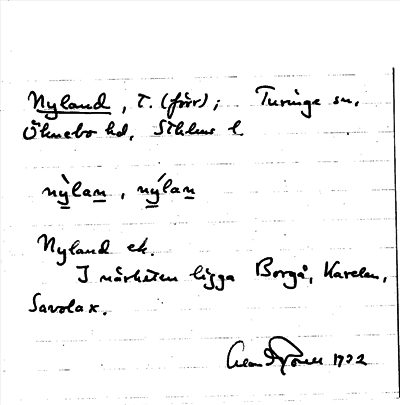 Nyland, T. (förr); Turinge sn,
Öknebo hd, Sthlms l.
nỳlan, nýlan
Nyland ek.
I närheten ligga Borgå, Karelen,
Savolax.
1922